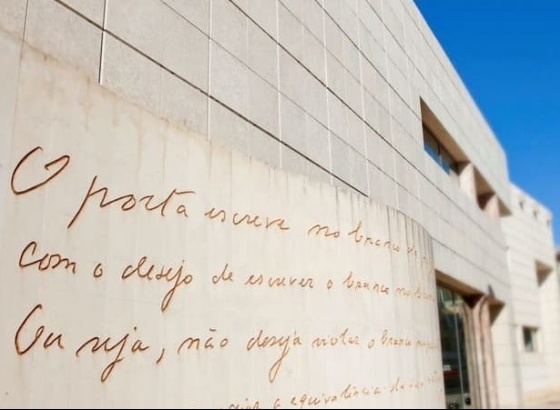 O poeta escreve no branco
com o desejo de escrever o branco no branco
Ou seja, não deseja violar o branco
a equivalência